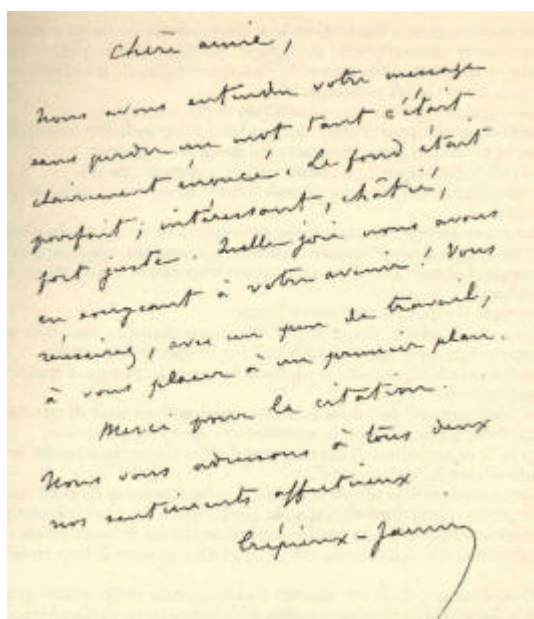 Chère amie,
Nous avons entendu votre message
sans perdre un mot tant c'était
clairement énoncé. Le fond était
parfait; intéressant, châtié,
fort juste. Quelle joie nous avons
en songeant à votre avenir! Vous
réussirez, avec un peu de travail,
à vous placer à un premier plan.
Merci pour la citation.
Nous vous adressons à tous deux
nos sentiments affectueux
Crépieux-Jamin